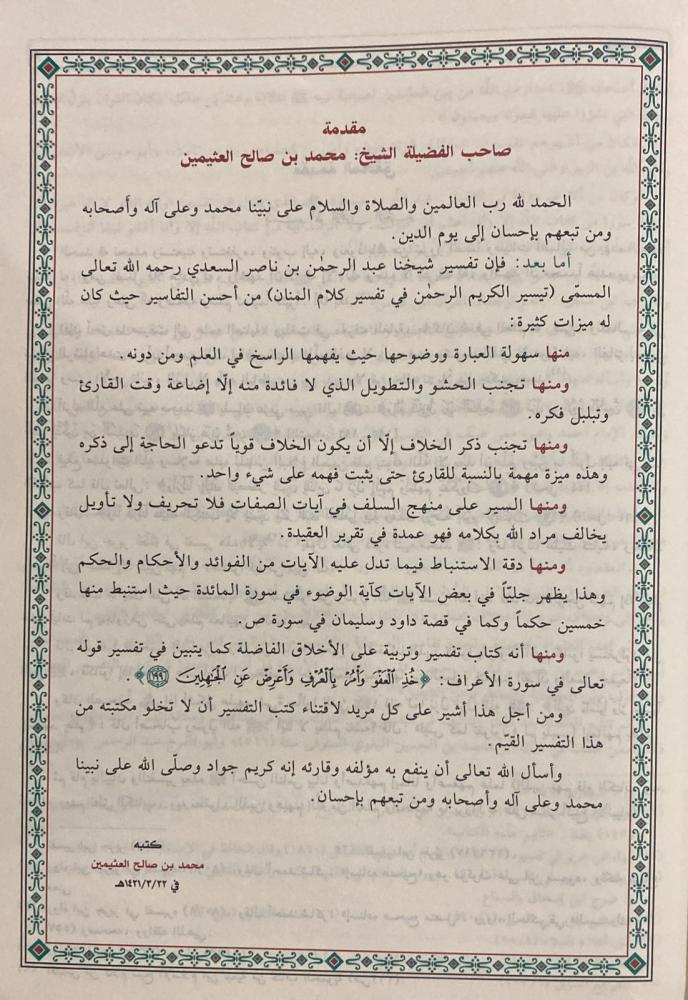 مقدمة
صاحب الفضيلة الشيخ: محمد بن صالح العثيمين
الحمد لله رب العالمين والصلاة والسلام على نبيّنا محمد وعلى آله وأصحابه
ومن تبعهم بإحسان إلى يوم الدين.
أما بعد: فإن تفسير شيخنا عبد الرحمٰن بن ناصر السعدي رحمه الله تعالى
المسمّى (تيسير الكريم الرحمٰن في تفسير كلام المنان) من أحسن التفاسير حيث كان
له ميزات كثيرة:
منها سهولة العبارة ووضوحها حيث يفهمها الراسخ في العلم ومن دونه.
ومنها تجنب الحشو والتطويل الذي لا فائدة منه إلّا إضاعة وقت القارئ
وتبلبل فكره.
ومنها تجنب ذكر الخلاف إلّا أن يكون الخلاف قوياً تدعو الحاجة إلى ذكره
وهذه ميزة مهمة بالنسبة للقارئ حتى يثبت فهمه على شيء واحد.
ومنها السير على منهج السلف في آيات الصفات فلا تحريف ولا تأويل
يخالف مراد الله بكلامه فهو عمدة في تقرير العقيدة.
ومنها دقة الاستنباط فيما تدل عليه الآيات من الفوائد والأحكام والحكم
وهذا يظهر جليّاً في بعض الآيات كآية الوضوء في سورة المائدة حيث استنبط منها
خمسين حكماً وكما في قصة داود وسليمان في سورة ص.
ومنها أنه كتاب تفسير وتربية على الأخلاق الفاضلة كما يتبين في تفسير قوله
تعالى في سورة الأعراف: ﴿خُذِ الْعَفْوَ وَأْمُرْ بِالْعُرْفِ وَأَعْرِضْ عَنِ الْجَٰهِلِينَ ١٩٩﴾
ومن أجل هذا أشير على كل مريد لاقتناء كتب التفسير أن لا تخلو مكتبته من
هذا التفسير القيّم.
وأسأل الله تعالى أن ينفع به مؤلفه وقارئه إنه كريم جواد وصلّى الله على نبينا
محمد وعلى آله وأصحابه ومن تبعهم بإحسان.
كتبه
محمد بن صالح العثيمين
في ١٤٢١/٣/٢٢هـ